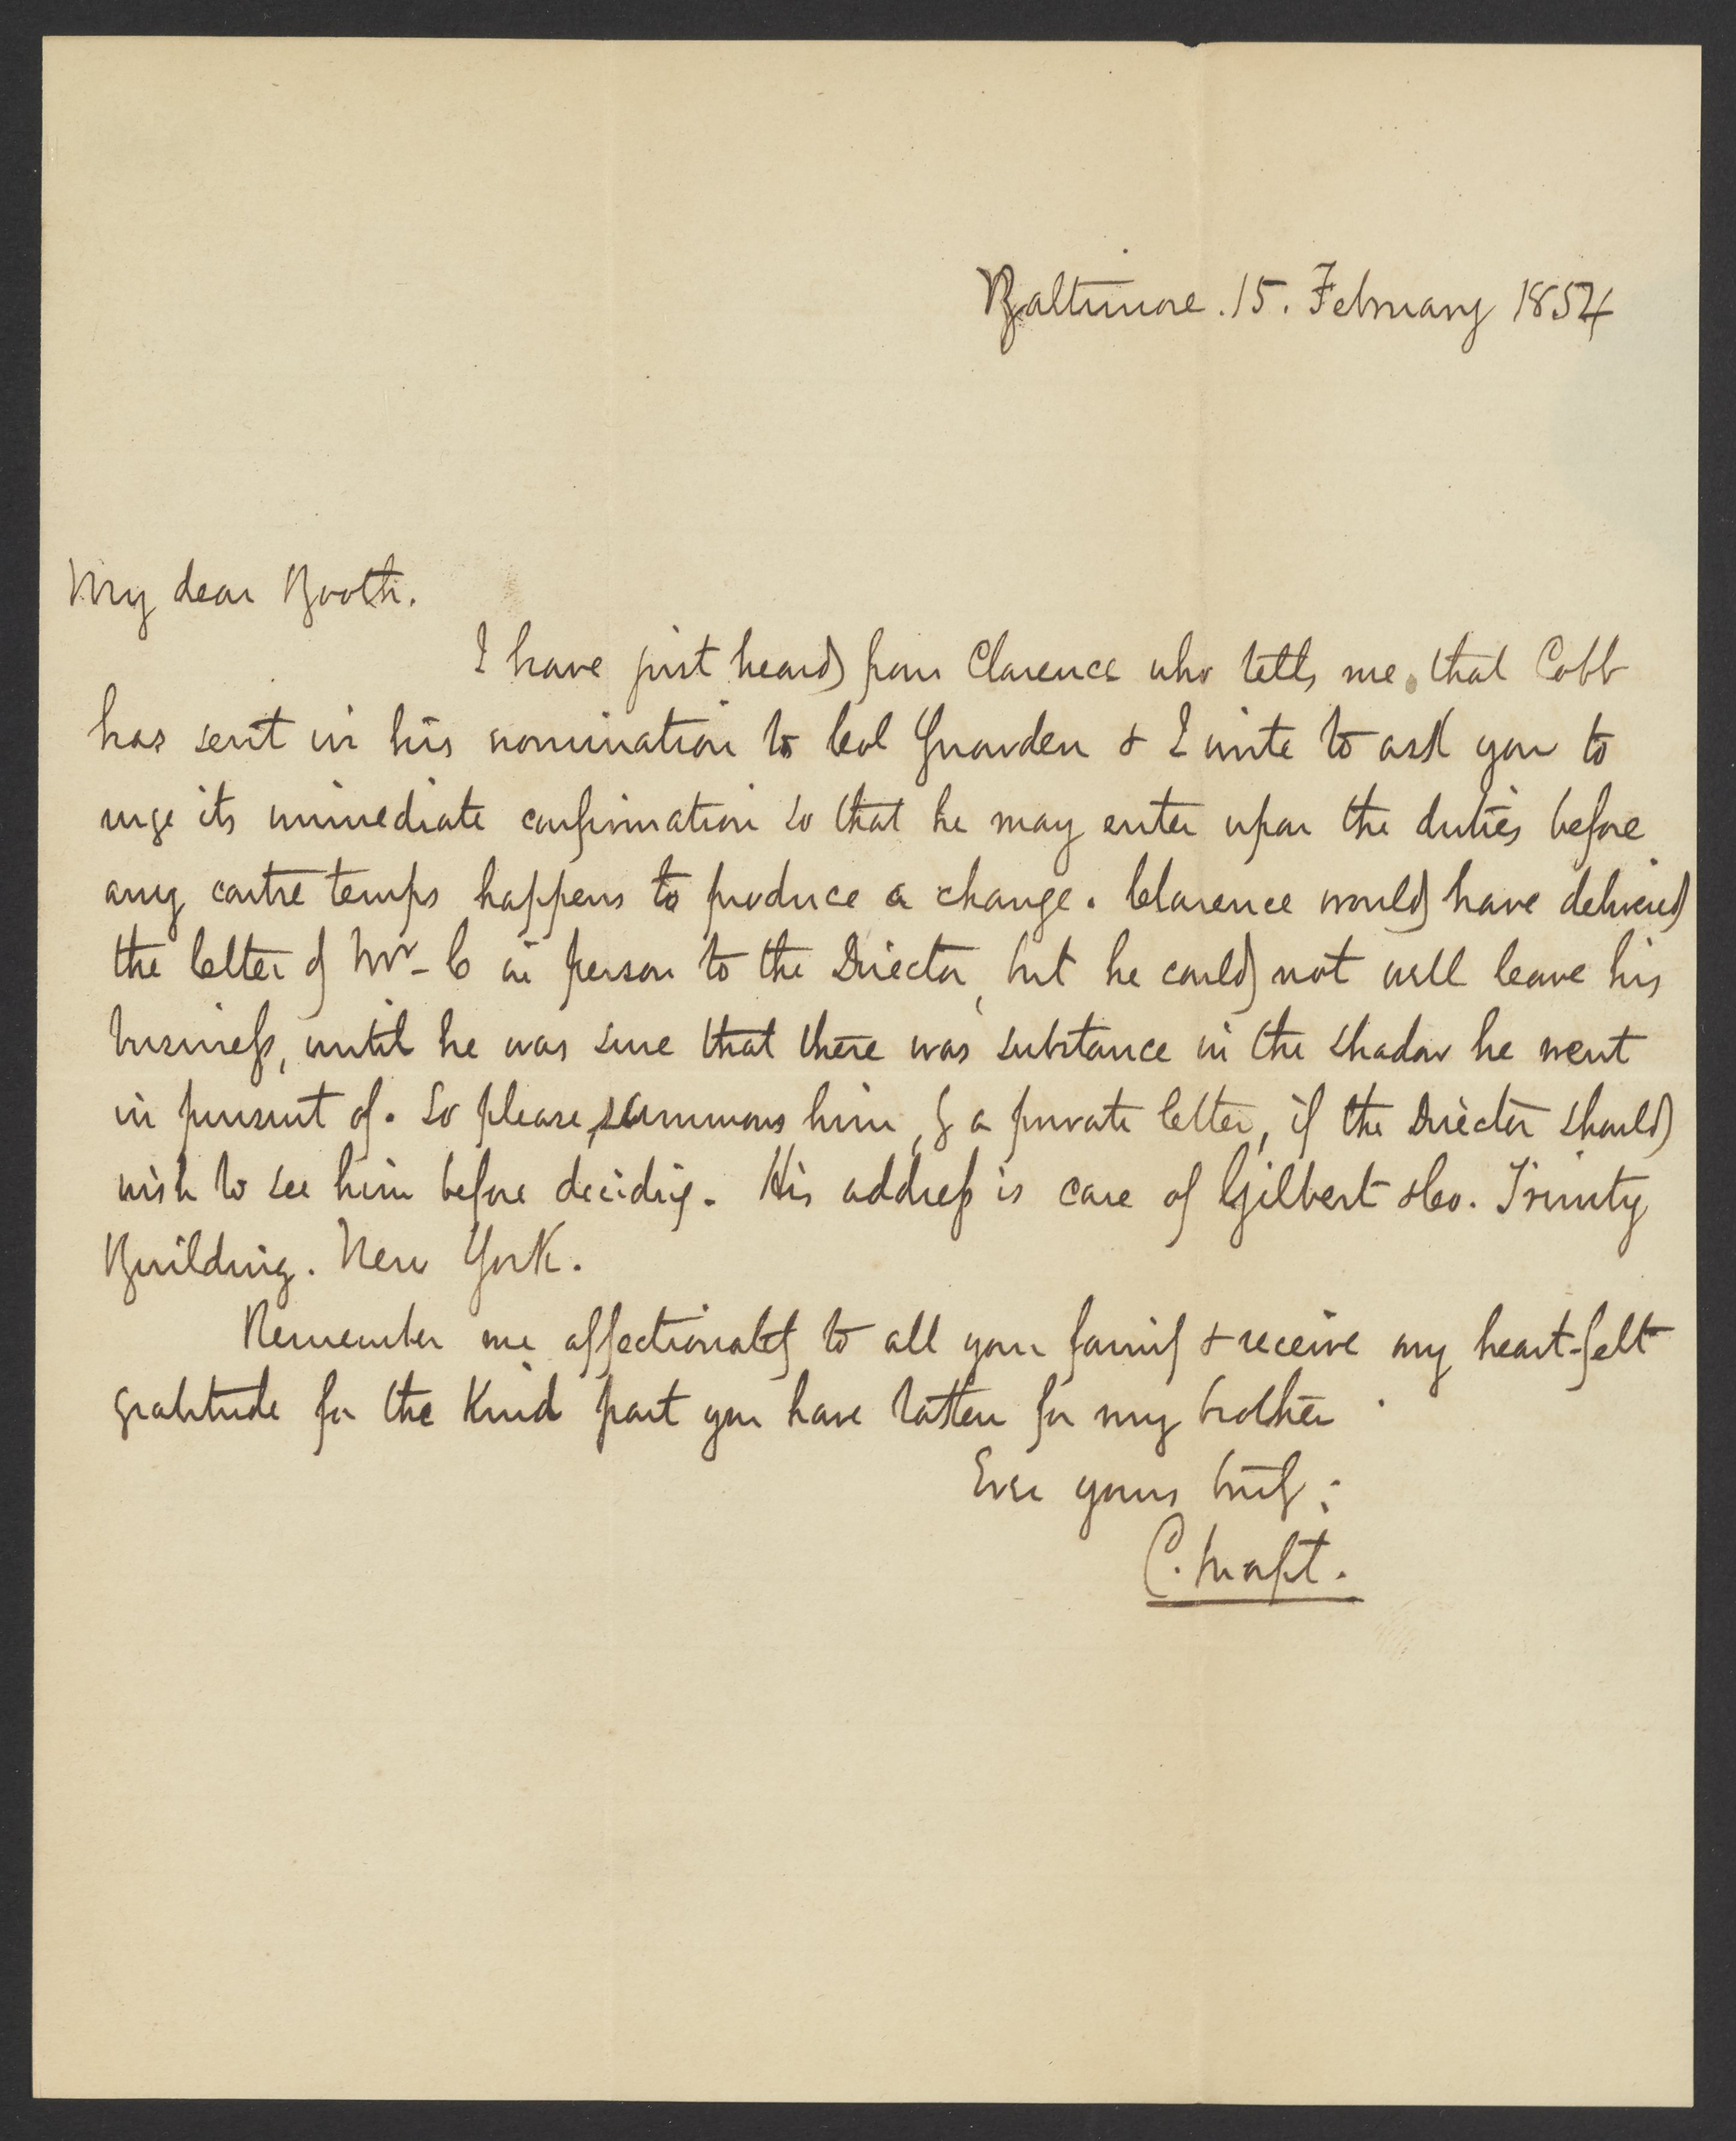 Baltimore. 15. February 1854
My dear Booth.
I have just heard from Clarence who tells me, that Cobb
has sent in his nomination to Col Snowden & I write to ask you to
urge its immediate confirmation so that he may enter upon the duties before
any contre temps happens to produce a change. Clarence would have delivered
the letter of Mr- C in person to the Director, but he could not well leave his
business, until he was sure that there was substance in the shadow he went
in pursuit of. So please, summons him, by a private letter, if the Director should
wish to see him before deciding. His address is care of Gilbert & Co. Trinity
Building. New York.
Remember me affectionately to all your family & receive my heart-felt
gratitude for the kind part you have taken for my brother.
Ever yours truly;
C.